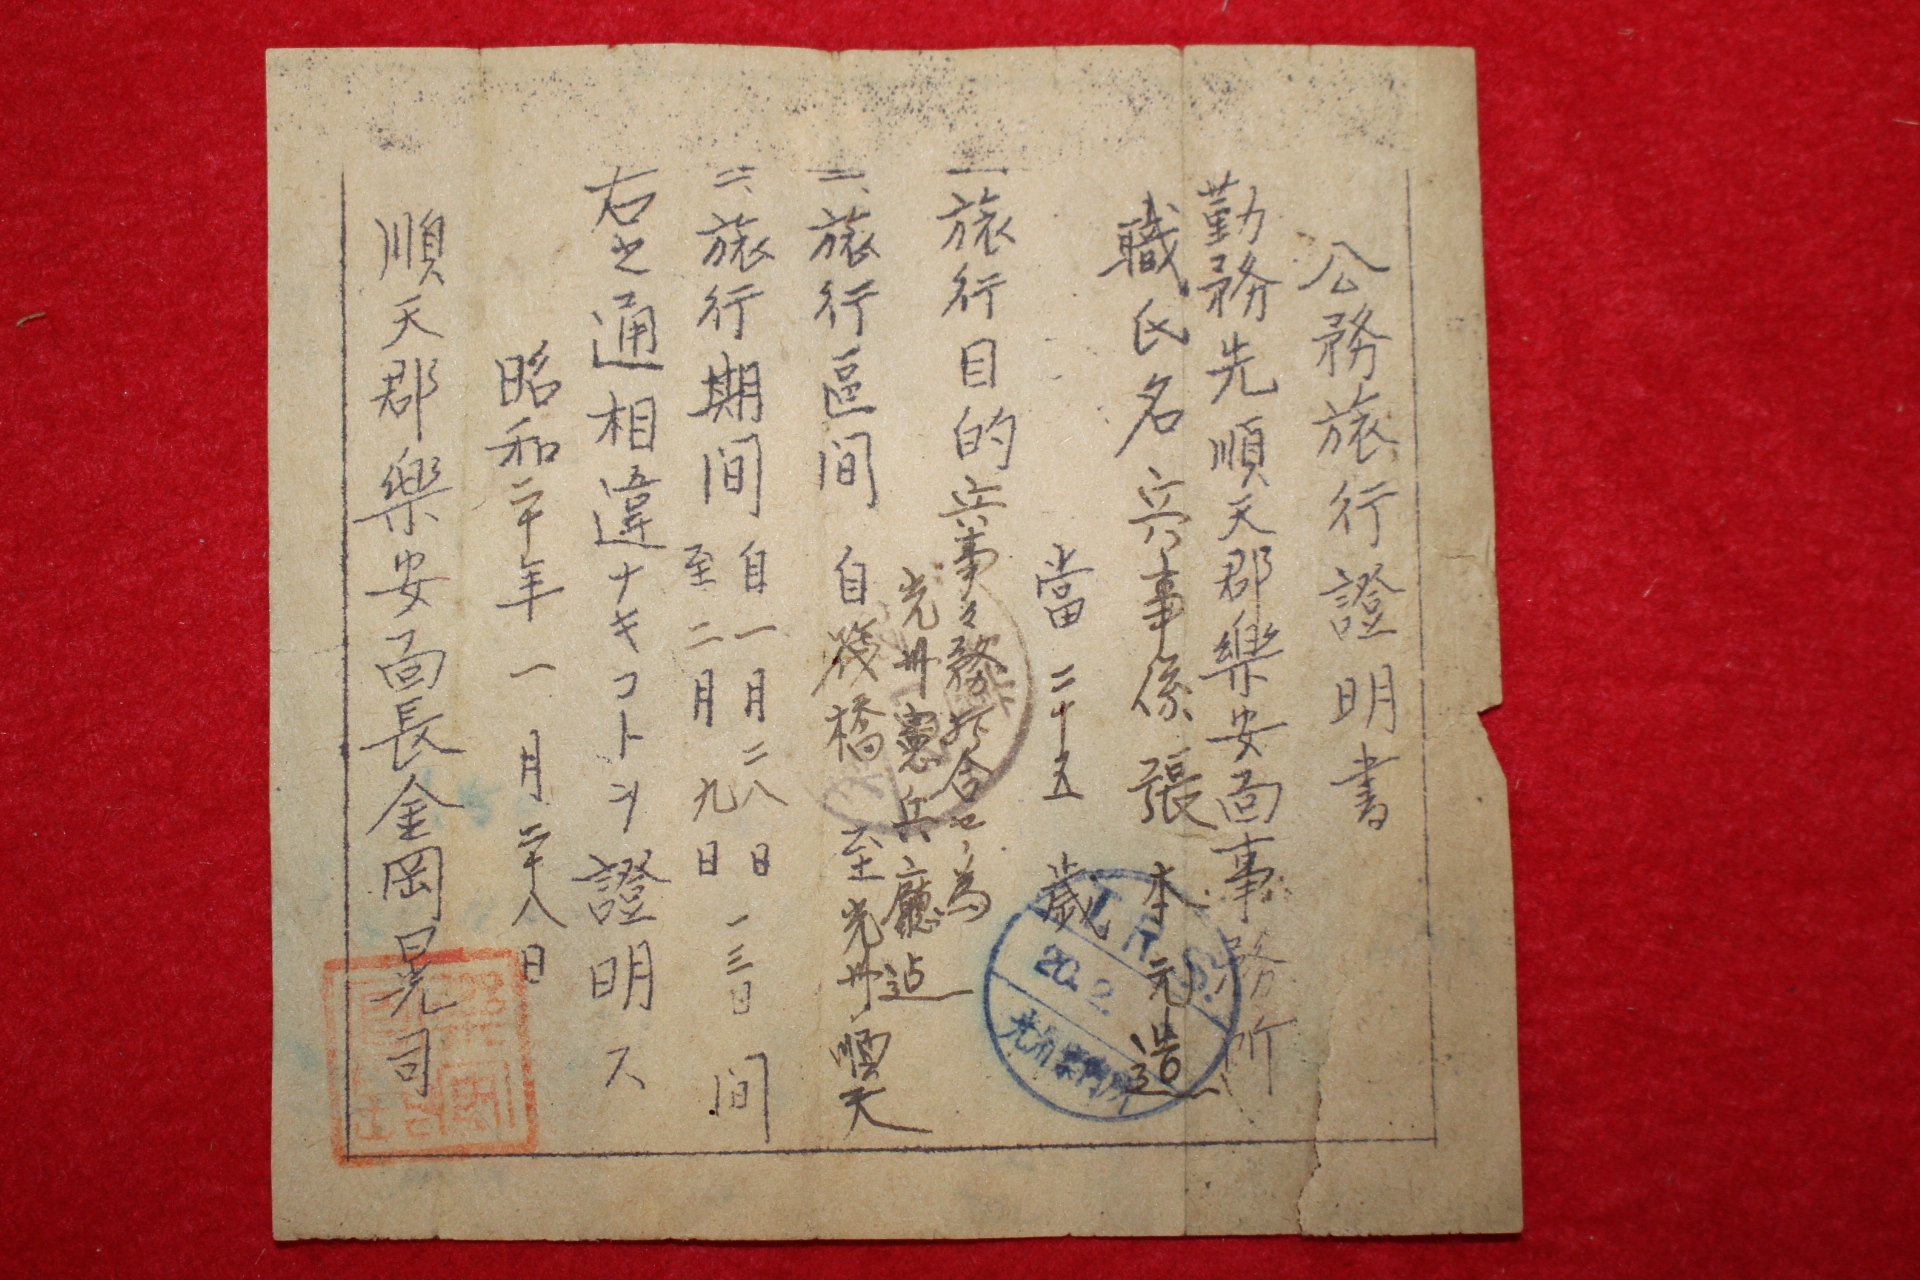 公務旅行證明書
勤務先順天郡樂安面事務所
職氏名 兵事係 張本元造
當二十五歲
一、旅行目的 兵事々務打合セノ為
光州憲兵廳迠
一、旅行區间 自筏橋 至光州、順天
一、旅行期间 自一月二八日
至二月九日
一三日间
右之通相違ナキコトヲ證明ス
昭和二十年一月二十八日
順天郡樂安面長金岡晃司
20.2